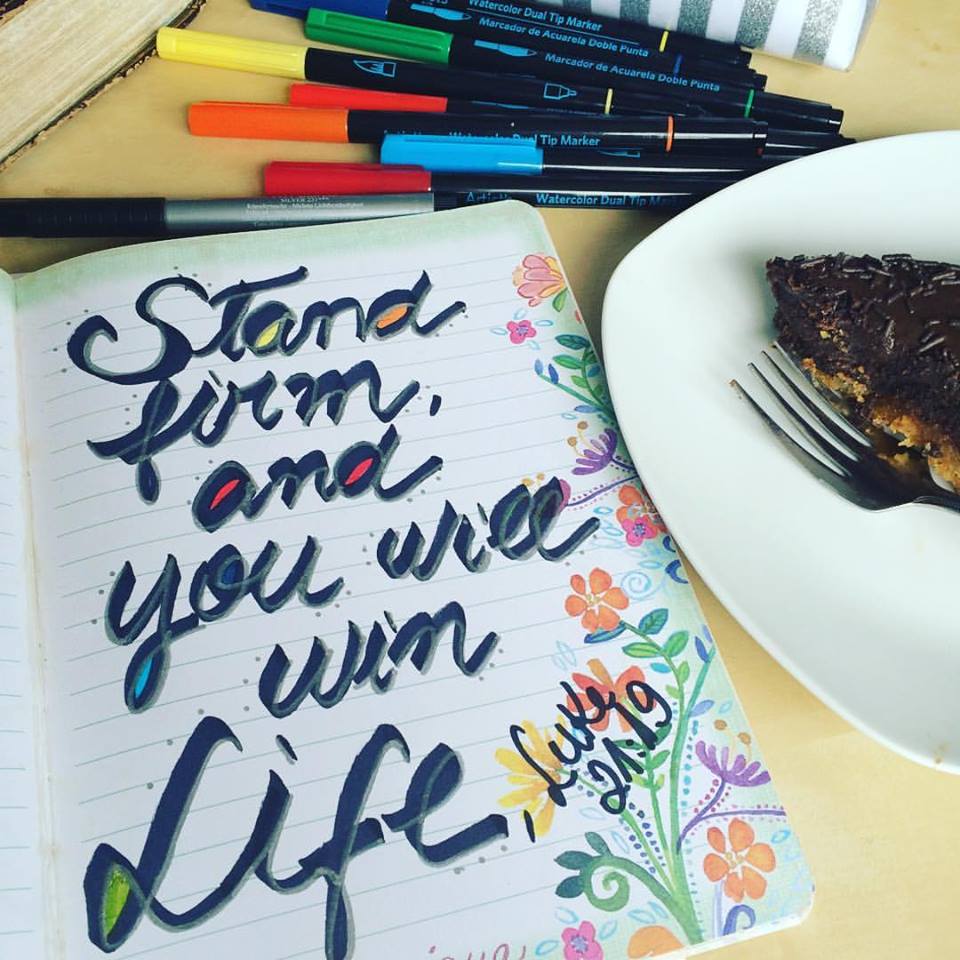 Watercolor Dual Tip Marker
Marcador de Acuarela Doble Punta
Marcador de Acuarela Doble Punta
Watercolor Dual Tip Marker
Watercolor Dual Tip
Stand
firm,
and
you will
win
Life,
Luke
21:19